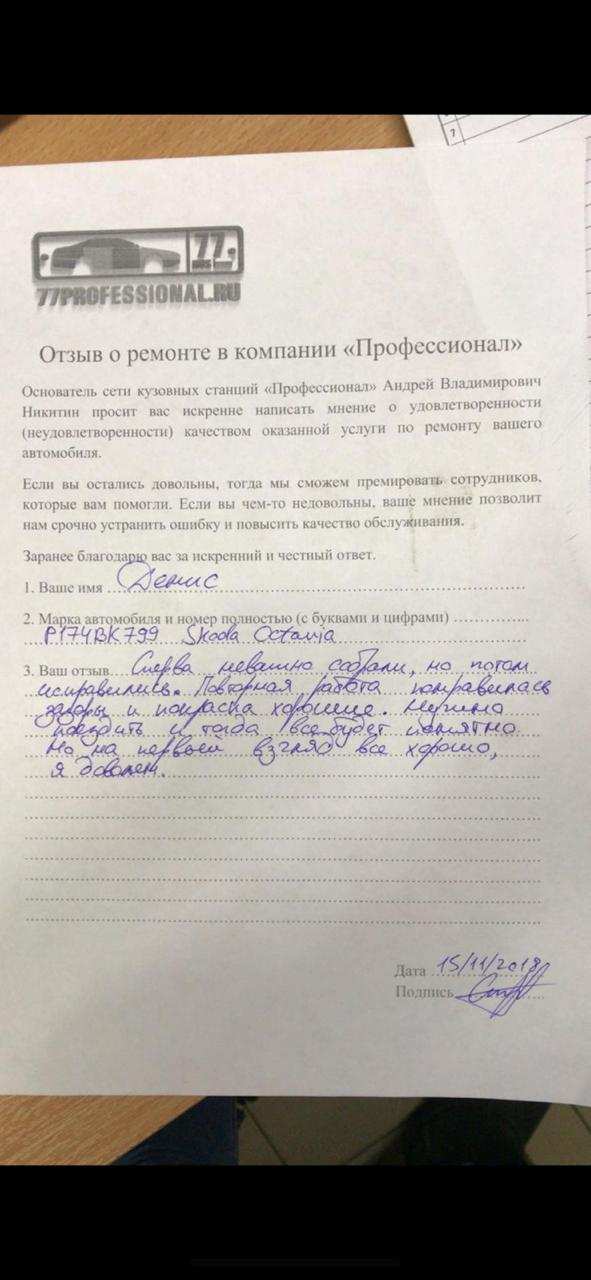 7
77
77PROFESSIONAL.RU
Отзыв о ремонте в компании «Профессионал»
Основатель сети кузовных станций «Профессионал» Андрей Владимирович
Никитин просит вас искренне написать мнение о удовлетворенности
(неудовлетворенности) качеством оказанной услуги по ремонту вашего
автомобиля.
Если вы остались довольны, тогда мы сможем премировать сотрудников,
которые вам помогли. Если вы чем-то недовольны, ваше мнение позволит
нам срочно устранить ошибку и повысить качество обслуживания.
Заранее благодарю вас за искренний и честный ответ.
1. Ваше имя Денис
2. Марка автомобиля и номер полностью (с буквами и цифрами)
Р174ВК799 Skoda Octavia
3. Ваш отзыв Сперва неважно собрали, но потом
исправились. Повторная работа понравилась
зазоры и покраска хорошие. Нужно
поездить и тогда все будет понятно.
Но на первый взгляд все хорошо,
я доволен.
Дата 15/11/2018
Подпись